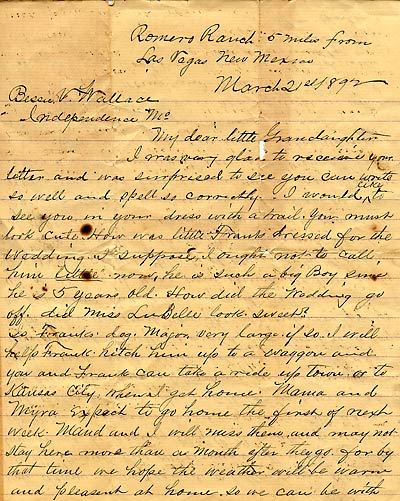 Romero Ranch 5 miles from
Las Vegas New Mexico
March 21st 1892
Bessie V. Wallace
Independence Mo
My dear little Grandaughter
I was very glad to receive your
letter and was surprised to see you can write
so well and spell so correctly. I would like to
see you in your dress with a trail. You must
look cute. How was little Frank dressed for the
Wedding. I suppose, I ought not to call
him little now, he is such a big Boy since
he is 5 years old. How did the Wedding go
off. did Miss LuDelle look sweet?
Is Franks dog. Major, very large, if so. I will
help Frank hitch him up to a waggon and
you and Frank can take a ride up town. or to
Kansas City, when I get home. Mama and
Myra Expect to go home the first of next
week. Maud and I will miss them, and may not
stay here more than a month after they go. for by
that time we hope the weather will be warm
and pleasant at home. so we can be with